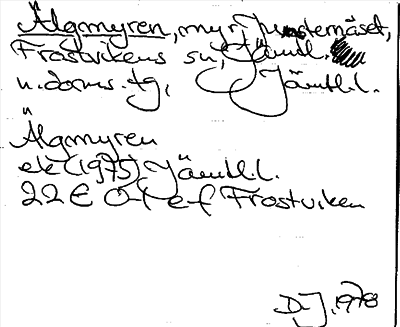 Älgmyren, myr
Frostvikens sn, Jämtl.
n. doms. tg, Jämtl.l.
Älgmyren
ek (1975) Jämtl.l.
22E 0-1 e-f Frostviken
D.J. 1978